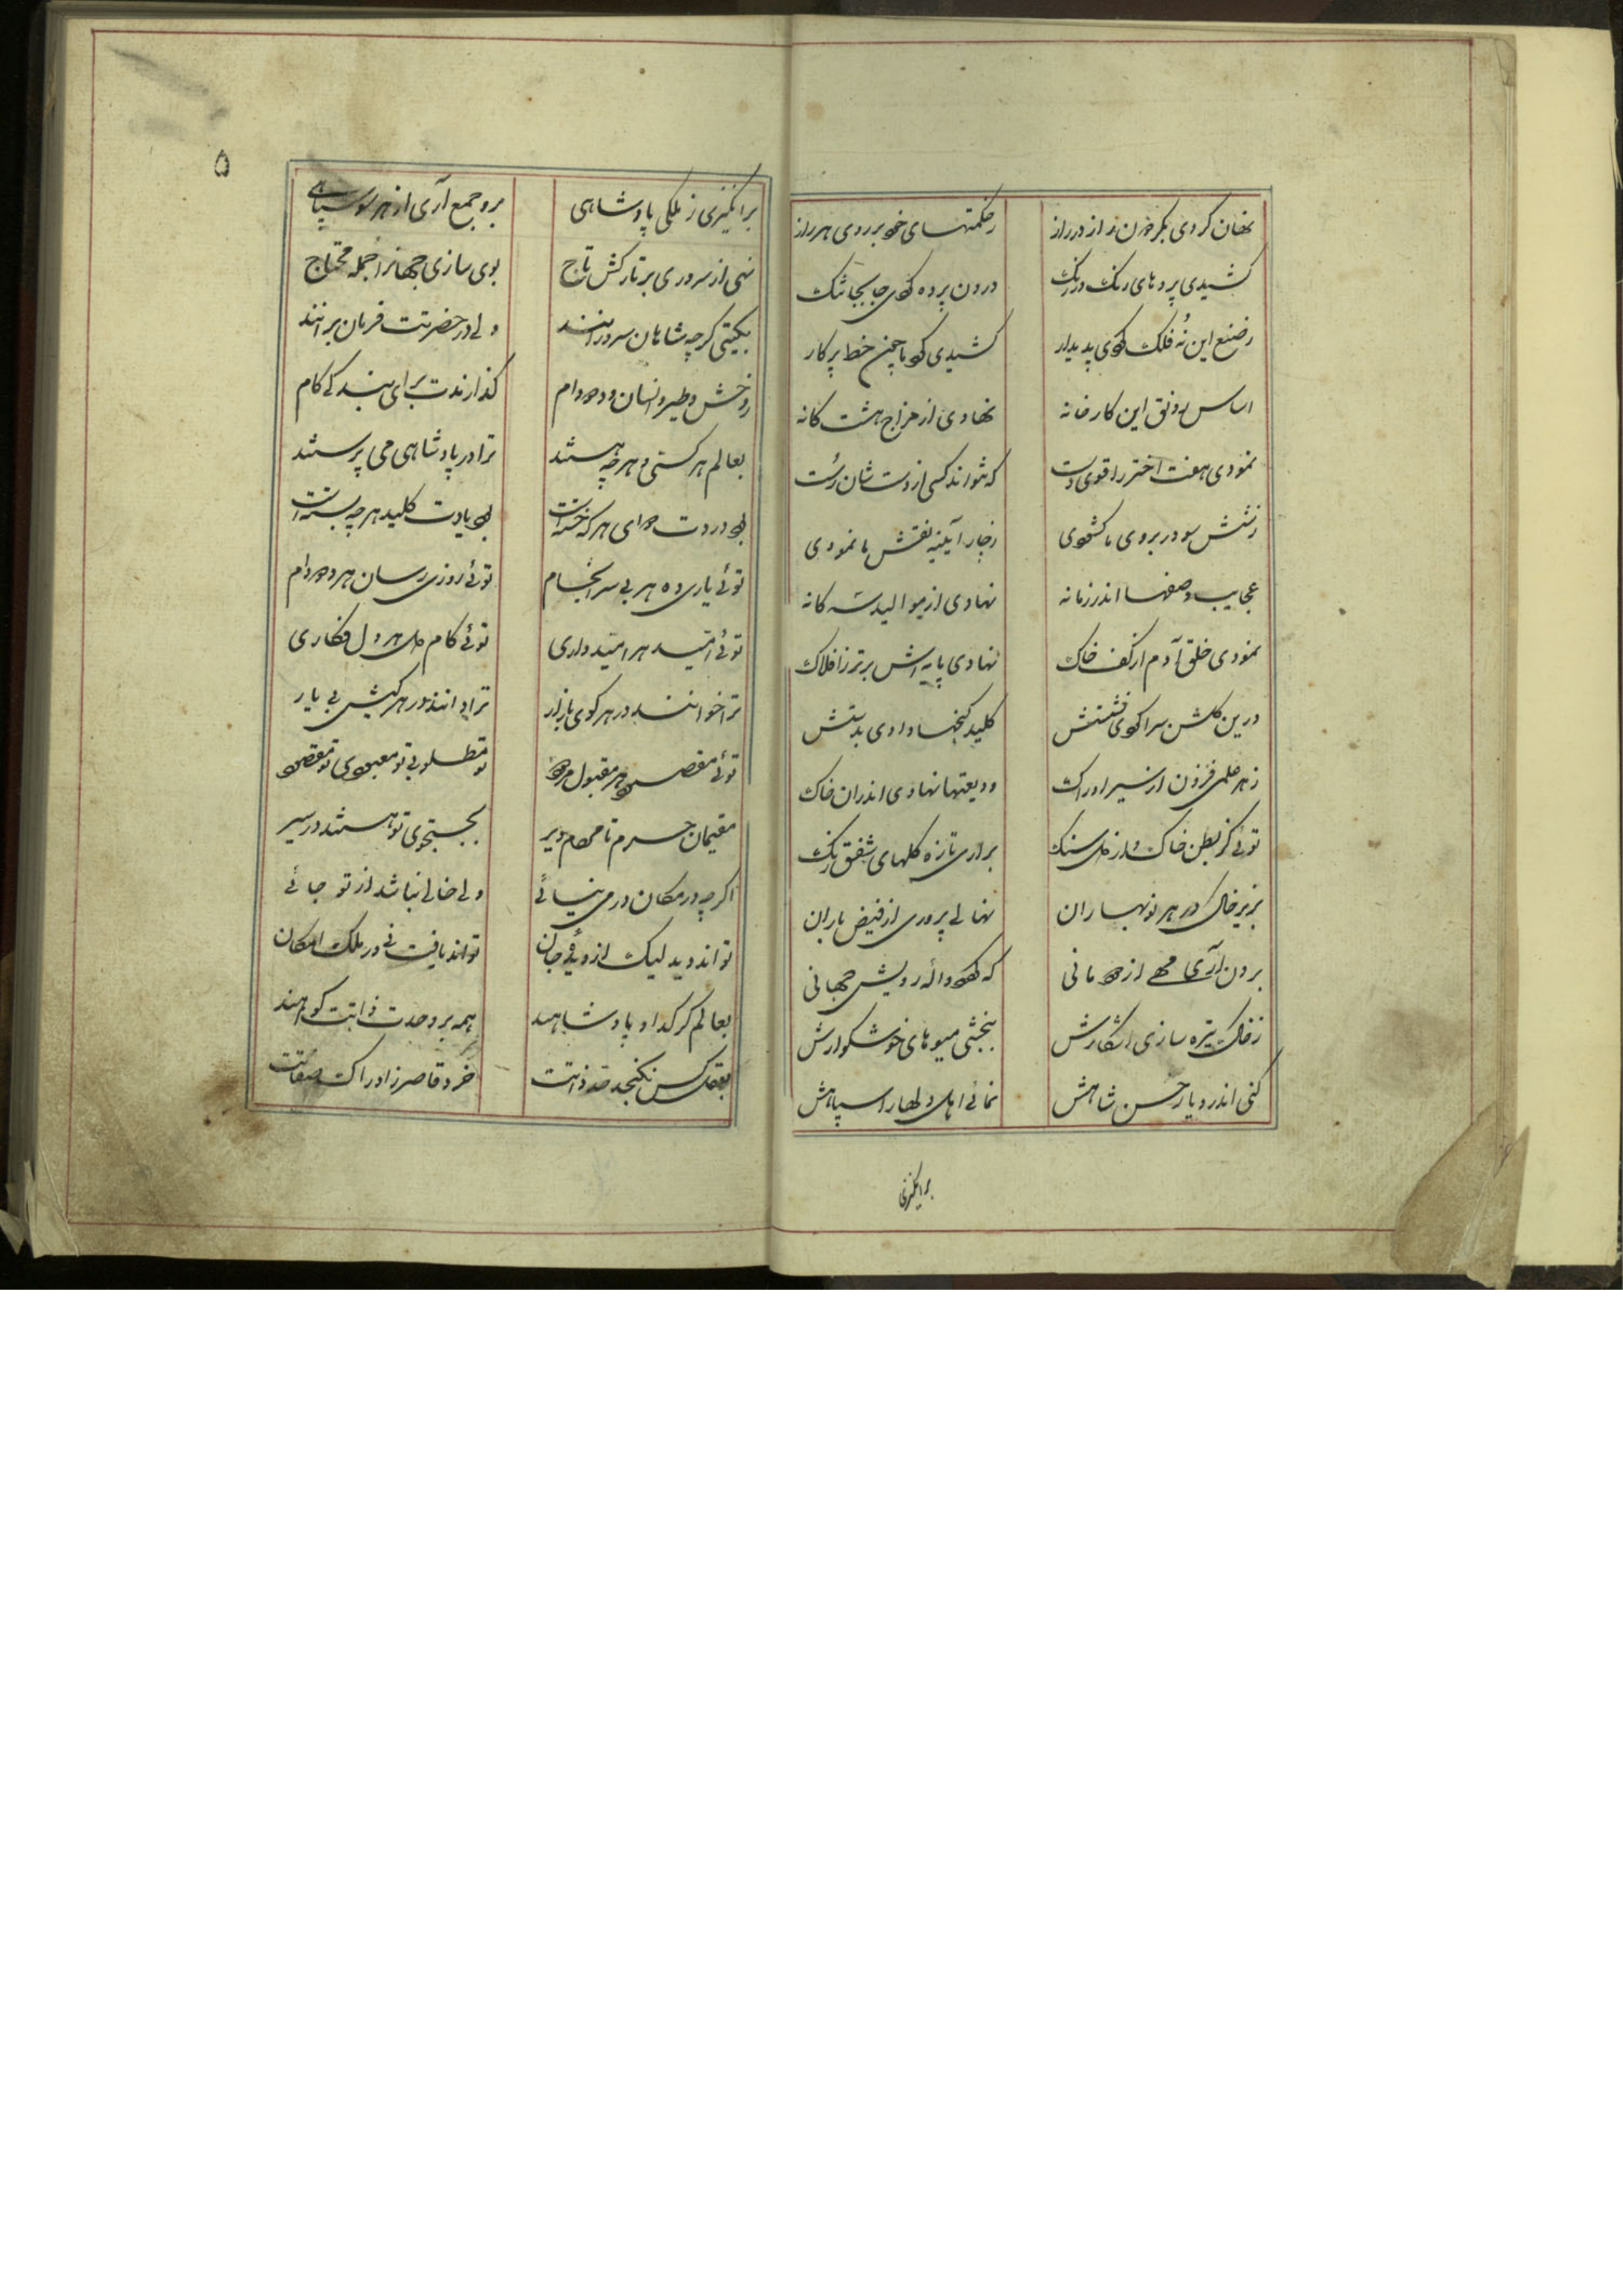 نهان کردی بکر خزن راز در راز
ز حکمتهای خود بر روی هر راز
کشیدی پردهای رنگ در رنگ
درون پرده کردی جا بجا تنک
ز صنع این نُه فلک کردی پدیدار
کشیدی کو یا چین خط پرکار
اساس رونق این کارخانه
نهادی از مزاج هشت کانه
نمودی هفت اختر را قوی دست
که نتواند کسی از دستشان رُست
ز شش سو در بروی ما کشودی
ز چار آیینه نقش ما نمودی
عجایب وصفها اندر زمانه
نهادی از موالید سه کانه
نمودی خلق آدم از کف خاک
نهادی پایه اش برتر ز افلاک
درین کلشن سرا کردی نشستش
کلید کنجها دادی بدستش
ز هر علمی فزون از سیر ادراک
ودیعتها نهادی اندران خاک
توئی کز بطن خاک و از دل سنک
براری تازه کلهای شفق رنک
بزیر خاک در هر نوبهاران
نهالی پروری از فیض باران
برون آری مهی از دودمانی
که کردد واله رویش جهانی
ز خاک تیره سازی آشکارش
ببخشی میوهای خوشکوارش
کنی اندر دیار حسن شاهش
نمائی اهل دلها را سپاهش
برانکیزی
۵
برانکیزی ز ملکی پادشاهی
برو جمع آری از هر سو سپاهی
نهی از سروری بر تارکش تاج
بوی سازی جهانرا جمله محتاج
بکیتی کرچه شاهان سرورانند
ولی در حضرتت فرمان برانند
ز وحش و طیر و انسان و دد و دام
کذارندت برای بندکی کام
بعالم هر کسی و هر چه هستند
ترا در پادشاهی می پرستند
بود دردت دوای هر که خسته است
بود یادت کلید هر چه بسته است
توئی یاری ده هر بی سرانجام
توئی روزی رسان هر دد و دام
توئی امّید هر امّیدواری
توئی کام دل هر دل فکاری
ترا خوانند در هر کوی و بازار
ترا دانند در هر کیش بی یار
توئی مقصود هر مقبول و مردود
تو مطلوبی تو معبودی تو مقصود
مقیمان حرم تا محرم دیر
بجستجوی تو هستند در سیر
اکر چه در مکان در می نیائی
ولی خالی نباشد از تو جائی
تواند دید لیک از دیدهٔ جان
تواند یافت نی در ملک امکان
بعالم کر کدا و پادشاهند
همه بر وحدت ذاتت کواهند
بعقل کس نکنجد قدر ذاتت
خرد قاصر ز ادراک صفاتت